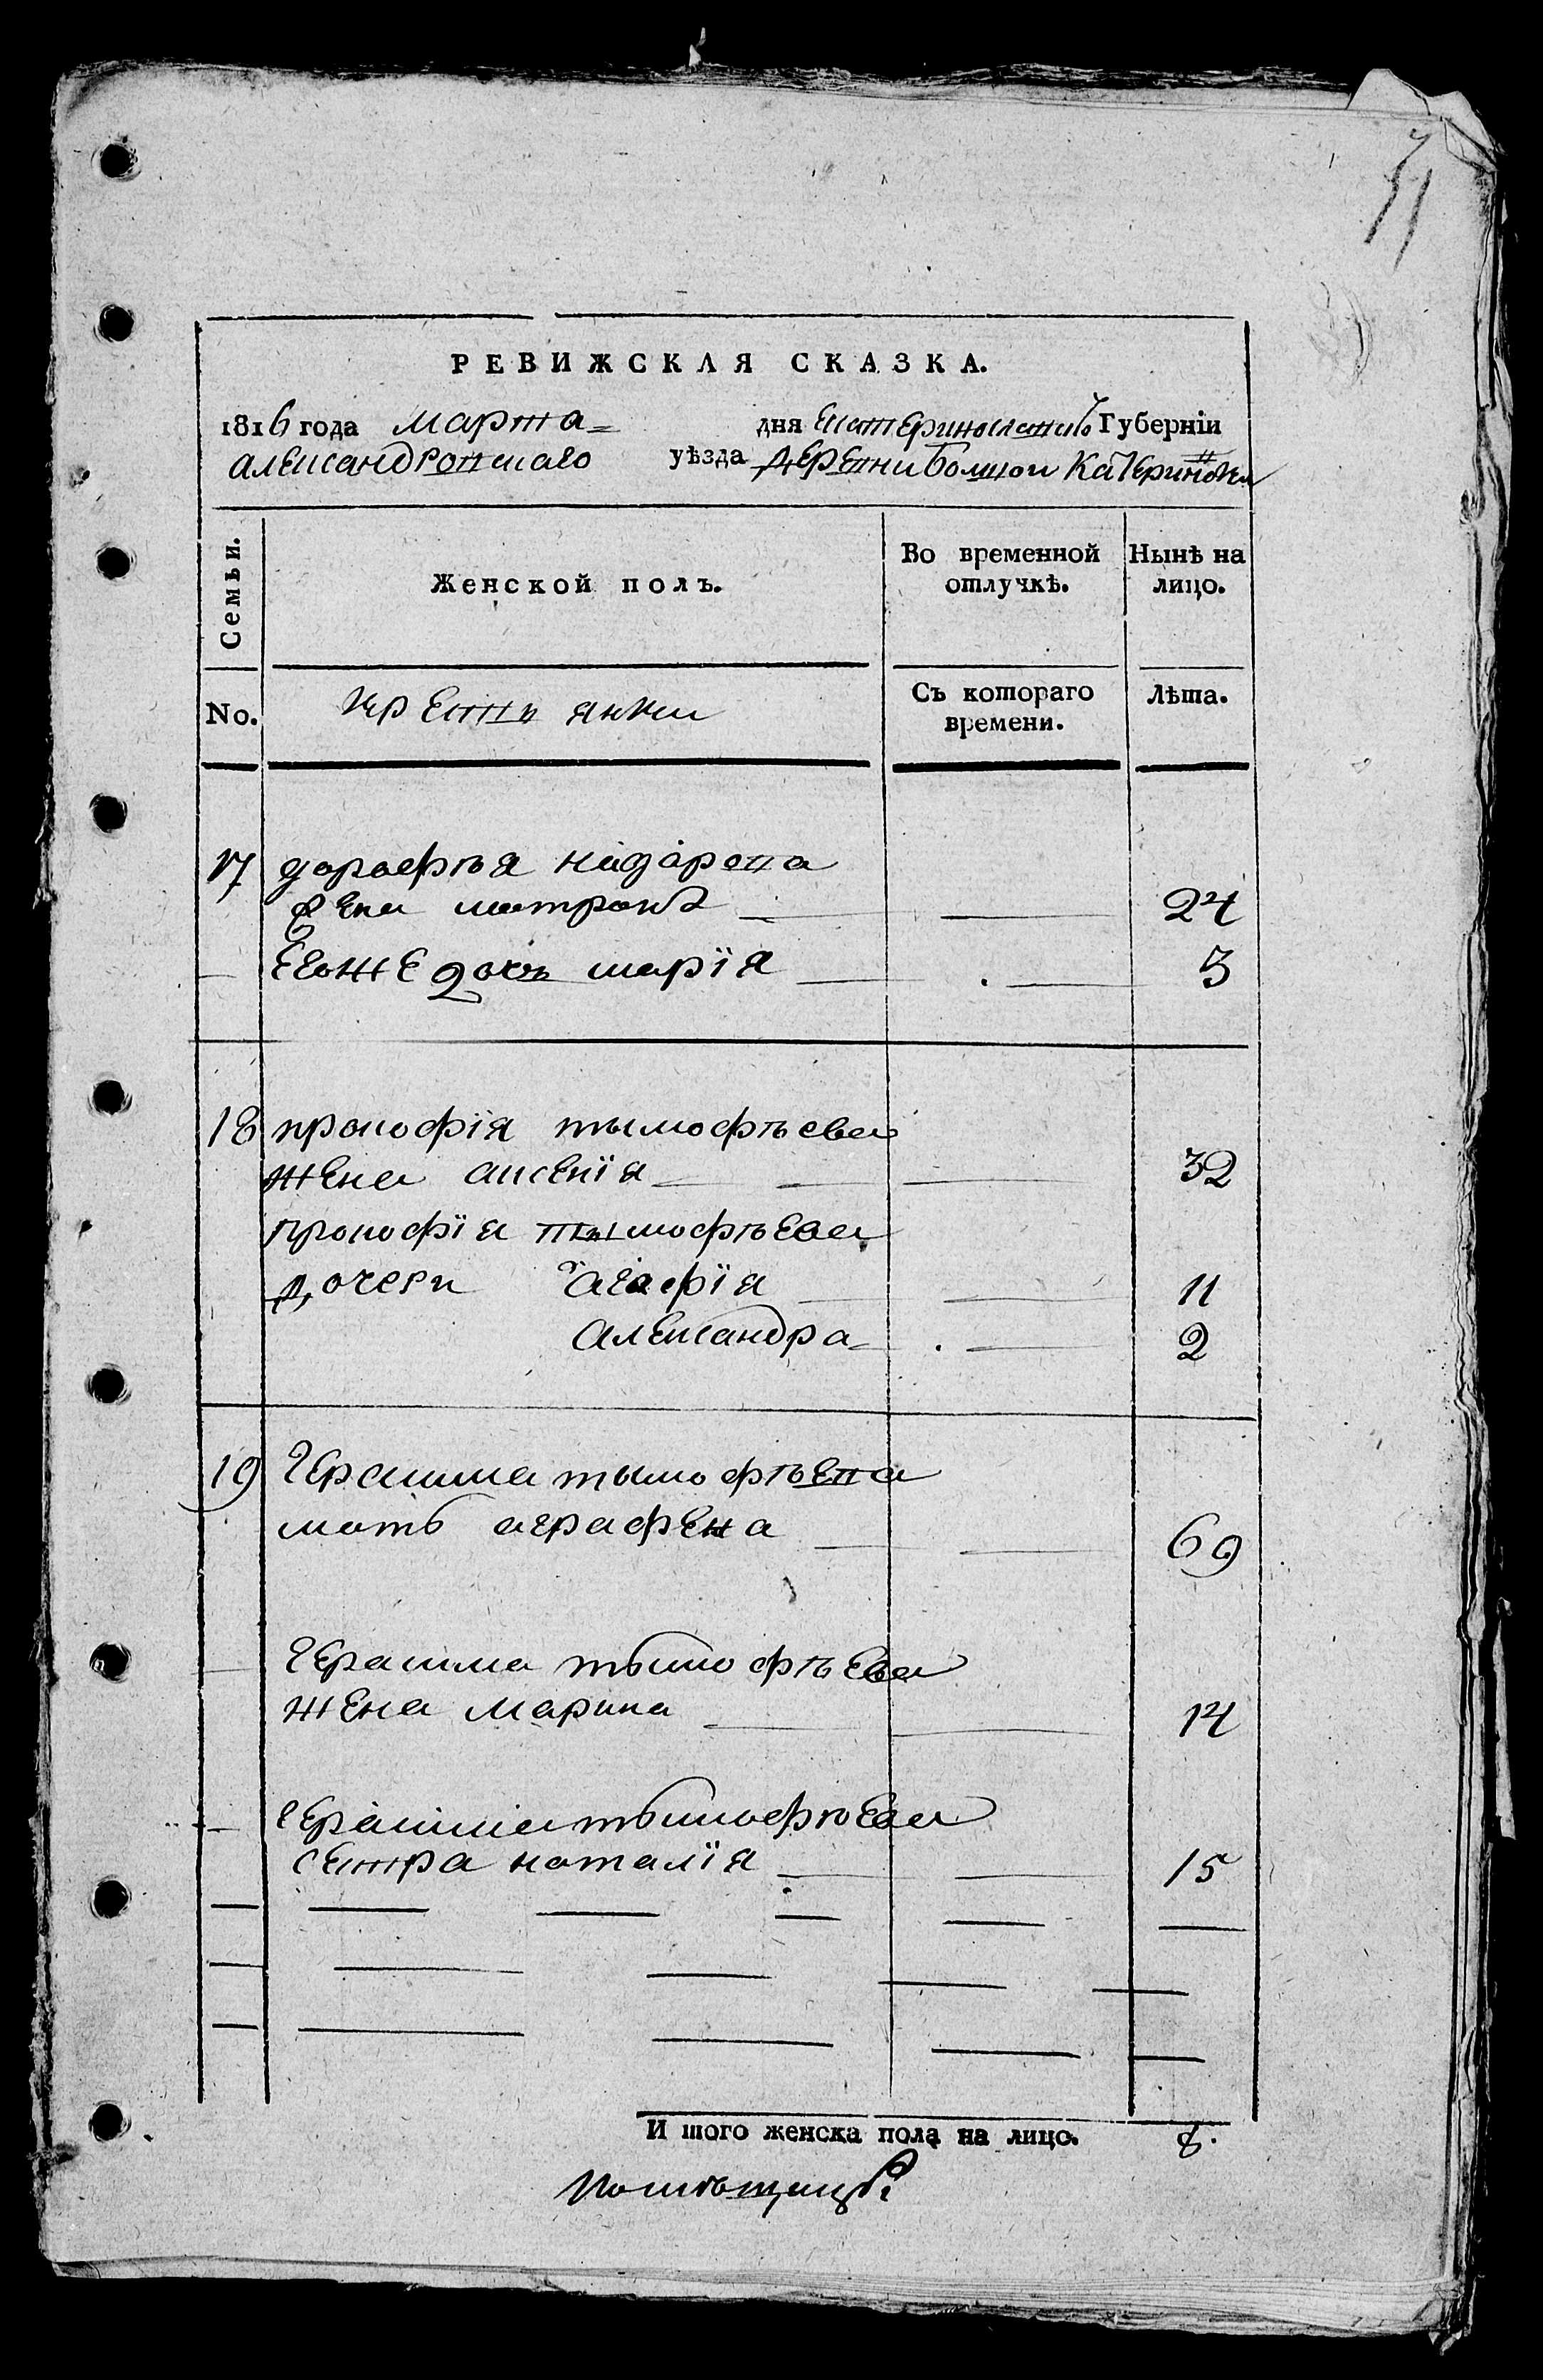 51
РЕВИЖСКАЯ СКАЗКА.
1816 года марта дня Екатеринославской Губернїи
александровскаго уѣзда деревни Болшой Катериновки
Семьи. Женской полъ. Во временной отлучкѣ. Нынѣ на лицо.
No. крестьянки Съ котораго времени. Лѣта.
17 дорофѣя назарова
жена матрона 24
Егоже дочь марїя 3
18 прокофїя тымофѣева
жена аксенїя 32
прокофїя тымофѣева
дочери агафїя 11
александра 2
19 Герасима тымофѣева
мать аграфена 69
Герасима тымофѣева
жена марина 14
Герасима тымофѣева
сестра наталїя 15
И того женска пола на лицо. 8.